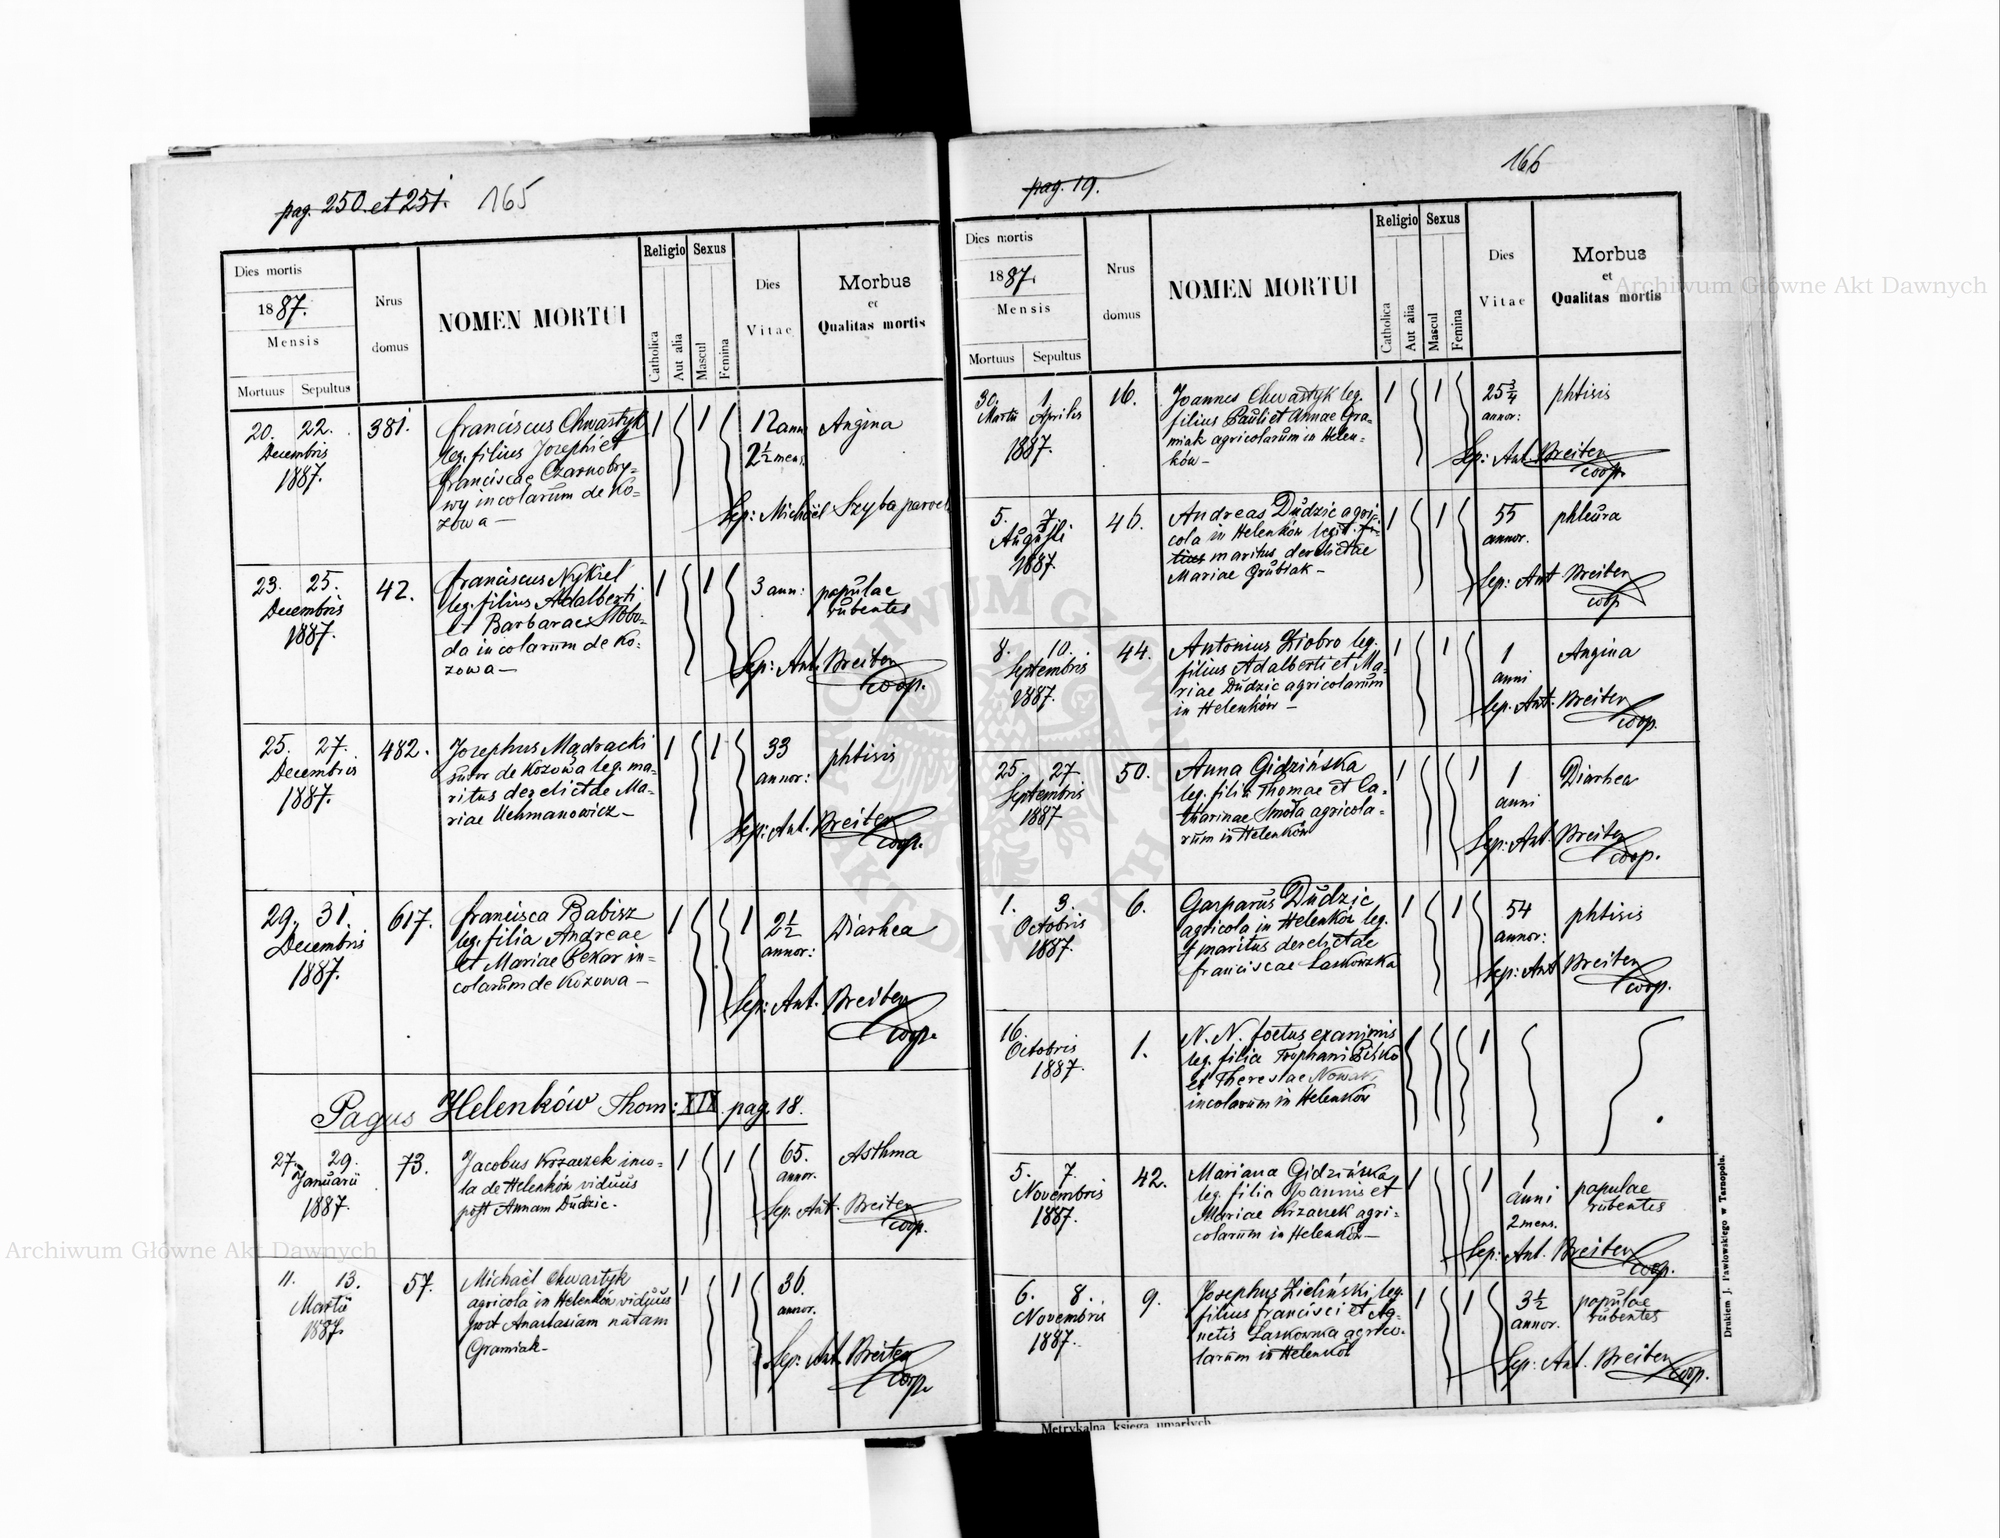 pag. 250 et 251. 165
Dies mortis
1887.
Mensis
Mortuus Sepultus
Nrus
domus
NOMEN MORTUI
Religio
Catholica
Aut alia
Sexus
Mascul
Femina
Dies
Vitae
Morbus
et
Qualitas mortis
20. 22.
Decembris
1887.
381.
Franciscus Chwastyk
leg. filius Josephi et
Franciscae Czarnobry-
wy incolarum de Ko-
zowa —
1 1
12 ann
2½ mens.
Angina
Sep: Michael Szyba paroch
23. 25.
Decembris
1887.
42.
Franciscus Nykiel
leg. filius Adalberti
et Barbarae Słobo-
da incolarum de Ko-
zowa —
1 1
3 ann:
papulae
rubentes
Sep: Ant. Breiter
coop.
25. 27.
Decembris
1887.
482.
Josephus Mądracki
sutor de Kozowa leg. ma-
ritus derelictae Ma-
riae Uchmanowicz —
1 1
33
annor:
phtisis
Sep: Ant. Breiter
coop.
29. 31.
Decembris
1887.
617.
Francisca Babisz
leg. filia Andreae
et Mariae Pekar in-
colarum de Kozowa —
1 1
2½
annor:
Diarhea
Sep: Ant. Breiter
coop.
Pagus Helenków Thom: XIX pag. 18.
27. 29.
Januarii
1887.
73.
Jacobus Krzaczek inco-
la de Helenków viduus
post Annam Dudzic.
1 1
65.
annor.
Asthma
Sep. Ant. Breiter
coop.
11. 13.
Martii
1887.
57.
Michaël Chwastyk
agricola in Helenków viduus
post Anastasiam natam
Gramiak —
1 1
36.
annor.
Sep: Ant. Breiter
coop.
pag. 19.
166
Dies mortis
1887.
Mensis
Mortuus Sepultus
Nrus
domus
NOMEN MORTUI
Religio
Catholica
Aut alia
Sexus
Mascul
Femina
Dies
Vitae
Morbus
et
Qualitas mortis
30. 1.
Martii Aprilis
1887.
16.
Joannes Chwastyk leg.
filius Pauli et Annae Gra-
miak agricolarum in Helen-
ków —
1 1
25¾
annor:
phtisis
Sep: Ant. Breiter
coop.
5. 7.
Augusti
1887.
46.
Andreas Dudzic agri-
cola in Helenków legit. fi-
lius maritus derelictae
Mariae Grubiak —
1 1
55
annor.
phleura
Sep: Ant Breiter
coop
8. 10.
Septembris
1887.
44.
Antonius Ziobro leg.
filius Adalberti et Ma-
riae Dudzic agricolarum
in Helenków —
1 1
1
anni
Angina
Sep. Ant. Breiter
coop.
25. 27.
Septembris
1887
50.
Anna Gidzińska
leg. filia Thomae et Ca-
tharinae Smoła agricola-
rum in Helenków
1 1
1
anni
Diarhea
Sep: Ant. Breiter
coop.
1. 3.
Octobris
1887.
6.
Gasparus Dudzic
agricola in Helenków leg.
maritus derelictae
Franciscae Laskowska
1 1
54
annor:
phtisis
Sep: Ant Breiter
coop.
16.
Octobris
1887.
1.
N. N. foetus exanimis
leg. filia Trophani
et Theresiae Nowak
incolarum in Helenków
1 1
5. 7.
Novembris
1887.
42.
Mariana Gidzińska
leg. filia Joannis et
Mariae Krzaczek agri-
colarum in Helenków —
1 1
1
anni
2 mens.
papulae
rubentes
Sep: Ant. Breiter
coop.
6. 8.
Novembris
1887.
9.
Josephus Zieliński leg.
filius Francisci et Ag-
netis Laskowska agrico-
larum in Helenków
1 1
3½
annor.
papulae
rubentes
Sep: Ant. Breiter
coop.
Drukiem J. Pawłowskiego w Tarnopolu.
Metrykalna księga umarłych.
Archiwum Główne Akt Dawnych
Archiwum Główne Akt Dawnych
ARCHIWUM GŁÓWNE AKT DAWNYCH